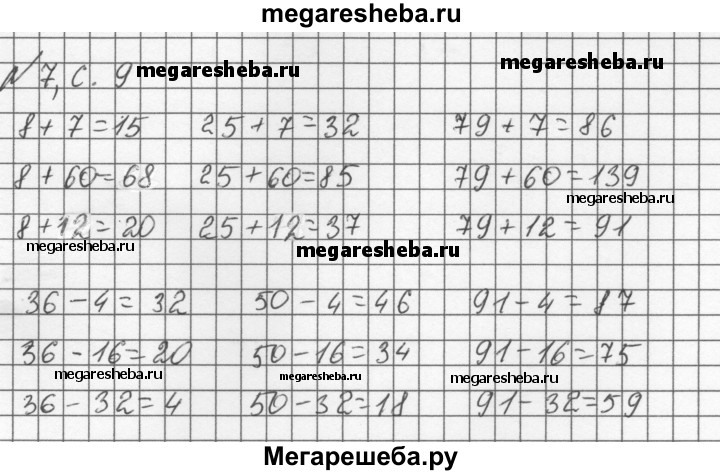 megaresheba.ru
№ 7, с. 9 megaresheba.ru megaresheba.ru
8 + 7 = 15 25 + 7 = 32 79 + 7 = 86
8 + 60 = 68 25 + 60 = 85 79 + 60 = 139
megaresheba.ru
8 + 12 = 20 25 + 12 = 37 79 + 12 = 91
megaresheba.ru megaresheba.ru
36 - 4 = 32 50 - 4 = 46 91 - 4 = 87
36 - 16 = 20 50 - 16 = 34 91 - 16 = 75
megaresheba.ru megaresheba.ru megaresheba.ru
36 - 32 = 4 50 - 32 = 18 91 - 32 = 59
Мегарешеба.ру